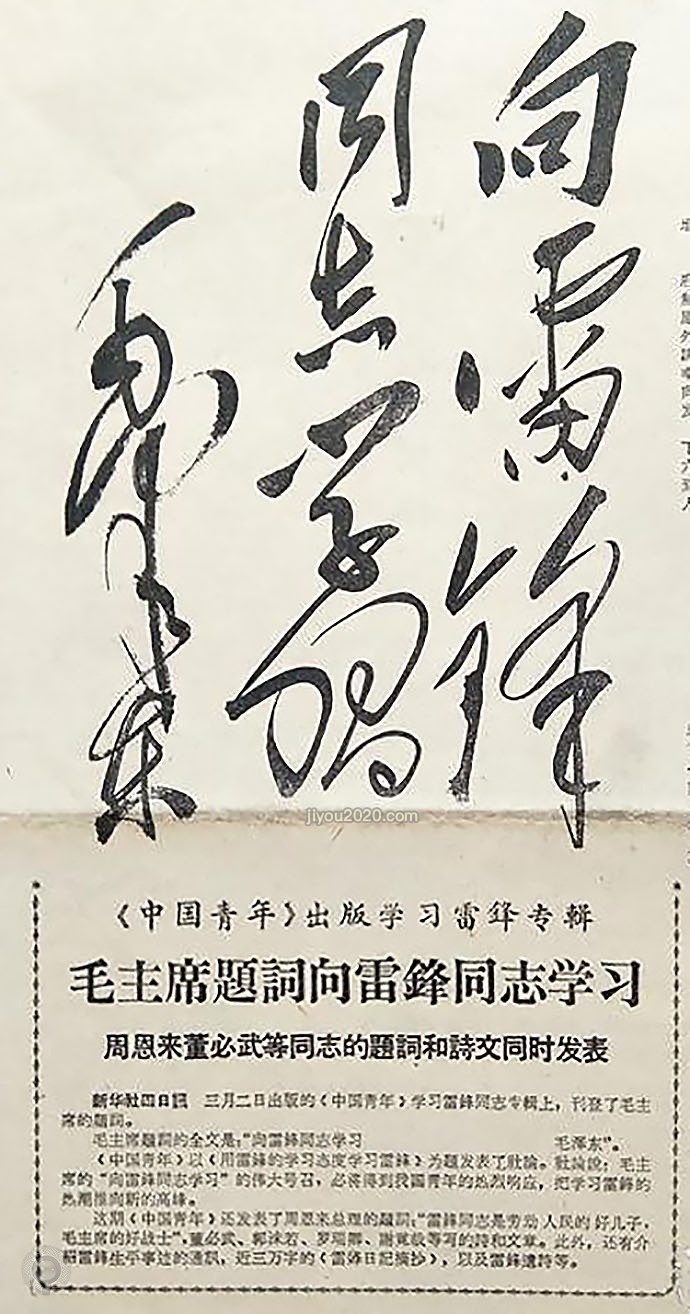 向雷锋
同志学習
毛泽东
jiyou2020.com
《中国青年》出版学习雷鋒专輯
毛主席題詞向雷鋒同志学习
周恩来董必武等同志的題詞和詩文同时发表
新华社四日訊 三月二日出版的《中国青年》学习雷鋒同志专輯上，刊登了毛主
席的題詞。
毛主席題詞的全文是：“向雷鋒同志学习 毛澤东”。
《中国青年》以《用雷鋒的学习态度学习雷鋒》为題发表了社論。社論說：毛主
席的“向雷鋒同志学习”的伟大号召，必将得到我国青年的热烈响应，把学习雷鋒的
热潮推向新的高峰。
这期《中国青年》还发表了周恩来总理的題詞：“雷鋒同志是劳动人民的好儿子，
毛主席的好战士”，董必武、郭沫若、罗瑞卿、謝覚哉等写的詩和文章。此外，还有介
紹雷鋒生平事迹的通訊，近三万字的《雷鋒日記摘抄》，以及雷鋒遺詩等。